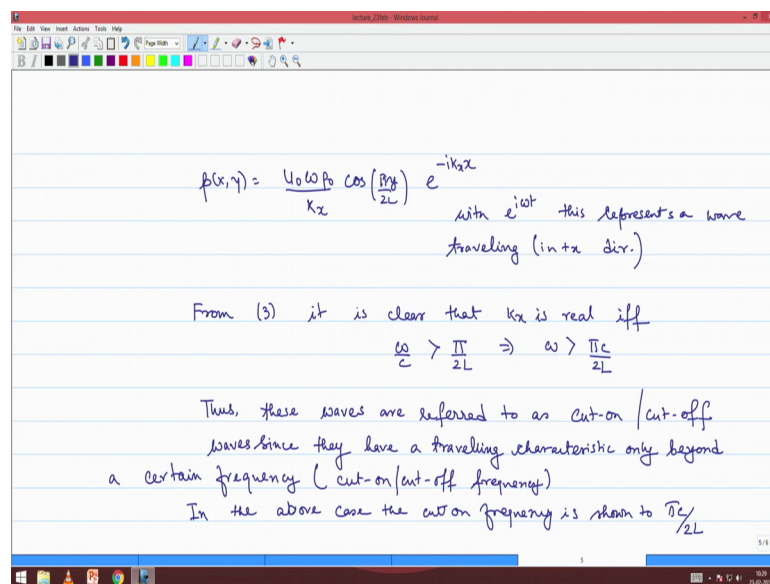 lecture_23feb - Windows Journal
File Edit View Insert Actions Tools Help
Page Width
B I
p(x,y) = u₀ωρ₀/kₓ cos(πy/2L) e^{-ikₓx}
with e^{iωt} this represents a wave
traveling (in +x dir.)
From (3) it is clear that kₓ is real iff
ω/c > π/2L ⇒ ω > πc/2L
Thus, these waves are referred to as cut-on/cut-off
waves since they have a travelling characteristic only beyond
a certain frequency (cut-on/cut-off frequency)
In the above case the cut on frequency is shown to πc/2L
5/6
5
10:29